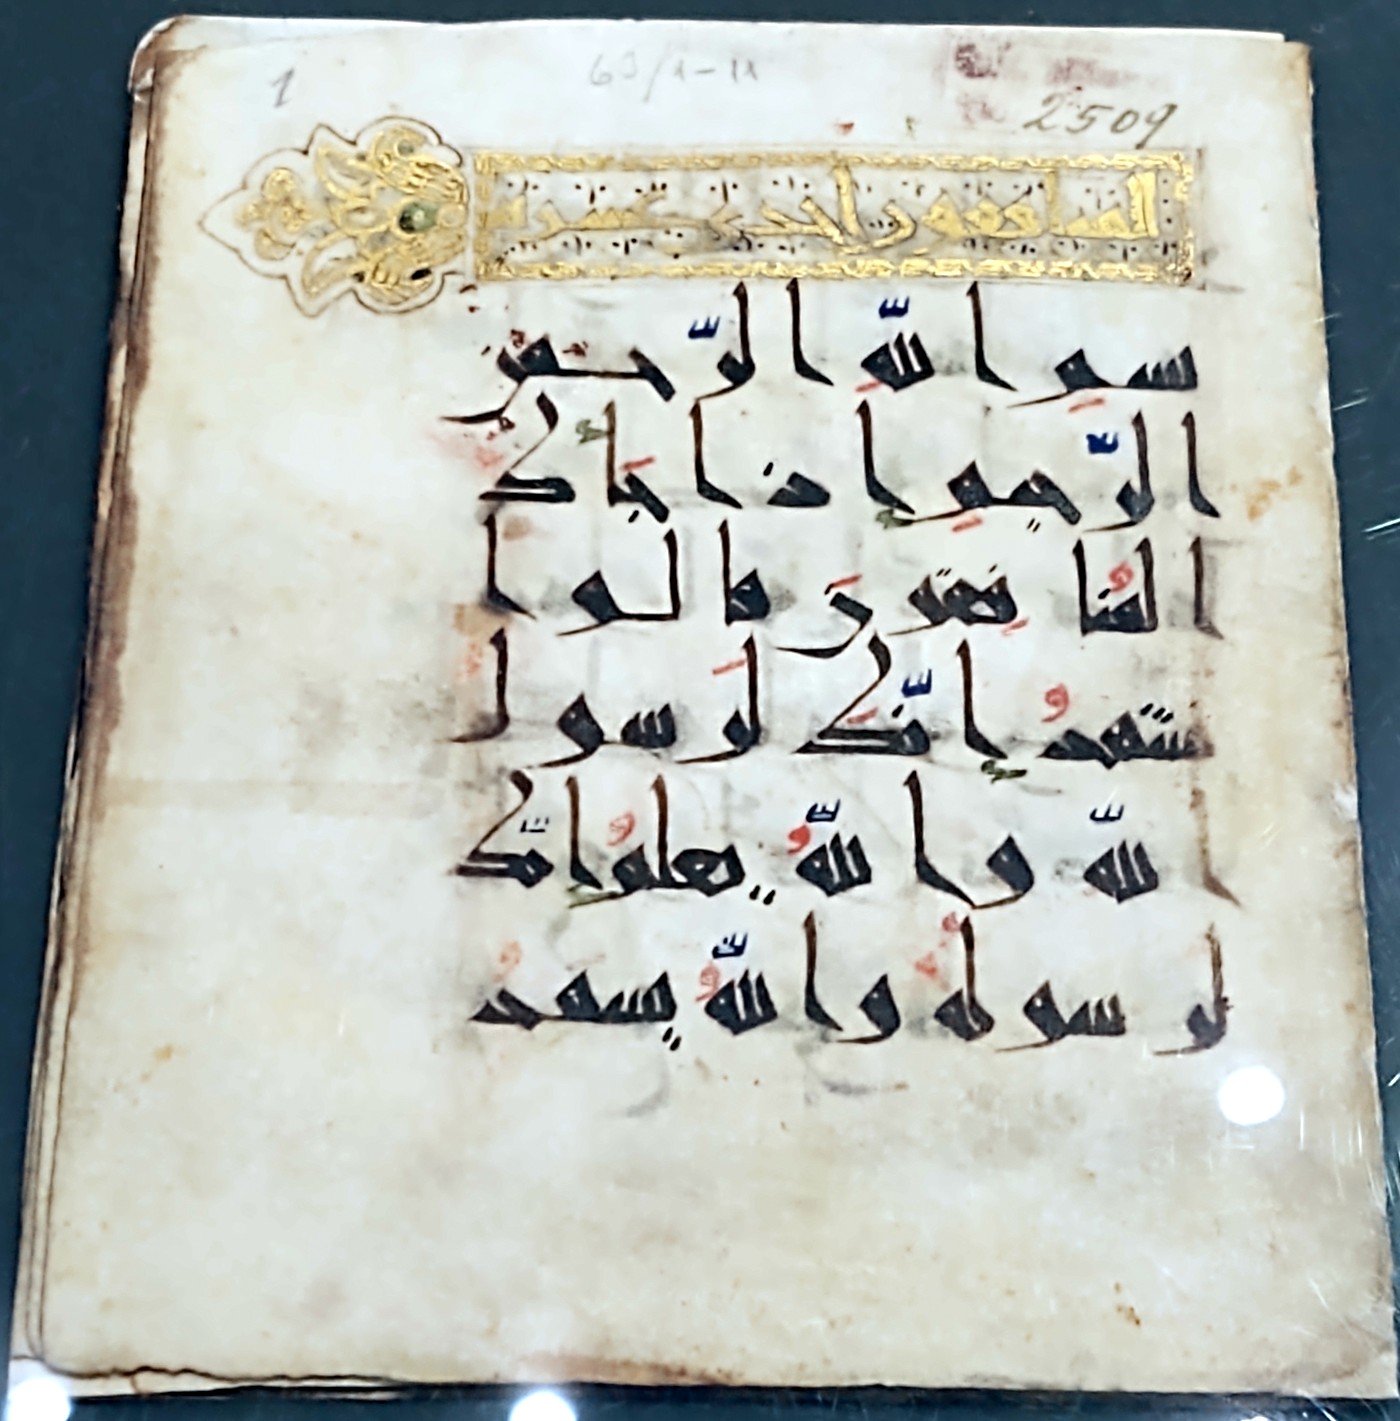 1
63/1-11
2509
المنافقون احدى عشرة
بسم الله الرحمن
الرحيم اذا جاءك
المنافقون قالوا
نشهد إنك لرسول
الله والله يعلم إنك
لرسوله والله يشهد